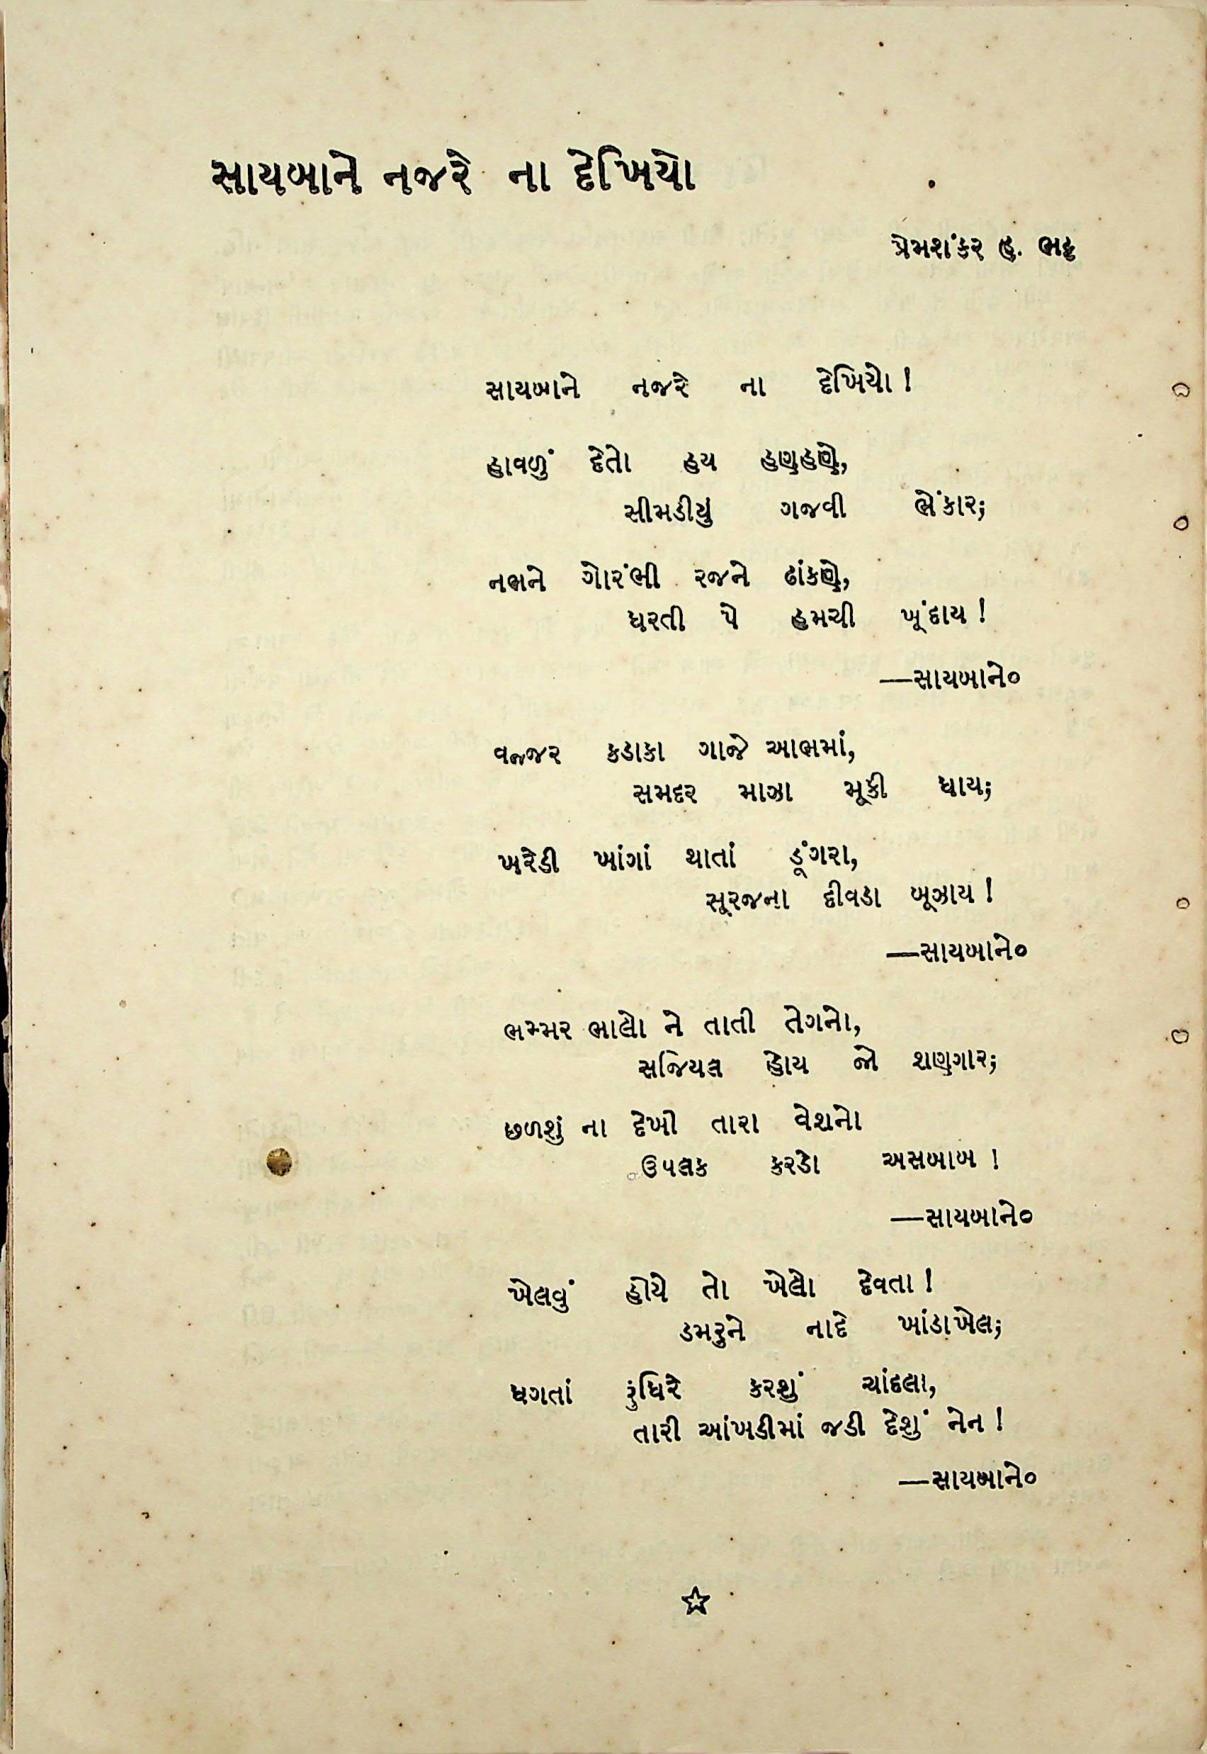 સાયબાને નજરે ના દેખિયો
પ્રેમશંકર હ. ભટ્ટ
સાયબાને નજરે ના દેખિયો !
હાવળું દેતો હય હણહણે,
સીમડીયું ગજવી ભેંકાર;
નભને ગોરંભી રજને ઢાંકણે,
ધરતી પે હમચી ખૂંદાય !
—સાયબાને૦
વજ્જર કડાકા ગાજે આભમાં,
સમદર માઝા મૂકી ધાય;
ખરેડી ખાંગાં થાતાં ડૂંગરા,
સૂરજના દીવડા બૂઝાય !
—સાયબાને૦
ભમ્મર ભાલો ને તાતી તેગનો,
સજિયલ હોય જો શણગાર;
છળશું ના દેખી તારા વેશનો
ઉપલક કરડો અસબાબ !
—સાયબાને૦
ખેલવું હોયે તો ખેલો દેવતા !
ડમરુને નાદે ખાંડાખેલ;
ધગતાં રુંધિરે કરશું ચાંદલા,
તારી આંખડીમાં જડી દેશું નેન !
—સાયબાને૦